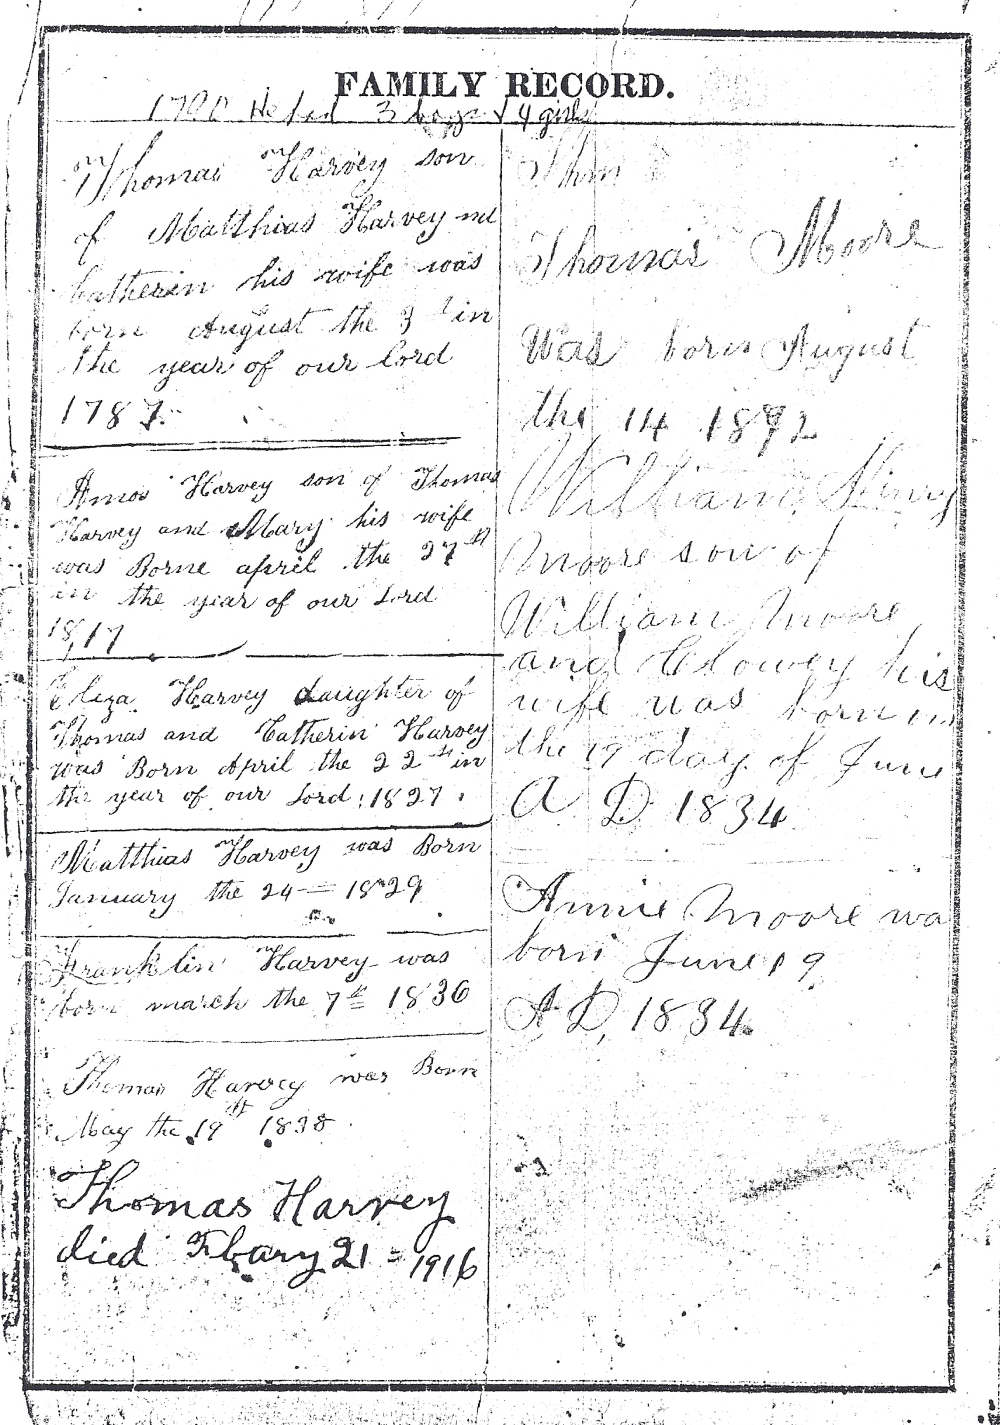 FAMILY RECORD.
He had 3 boys & 4 girls
Thomas Harvey son
of Matthias Harvey and
Catherin his wife was
born August the 3 in
the year of our Lord
1787.
Amos Harvey son of Thomas
Harvey and Mary his wife
was Borne april the 27th
in the year of our Lord
1817
Eliza Harvey daughter of
Thomas and Catherin Harvey
was Born April the 22th in
the year of our Lord 1827.
Matthias Harvey was Born
January the 24 — 1829
Franklin Harvey was
born march the 7th 1836
Thomas Harvey was Born
May the 19th 1838
Thomas Harvey
died Fbary 21 = 1916
Thm
Thomas Moore
Was born August
the 14 1892
William Henry
Moore son of
William Moore
and Clowey his
wife was born in
the 19 day of June
A D 1834
Annie Moore wa
born June 19
A D, 1834.